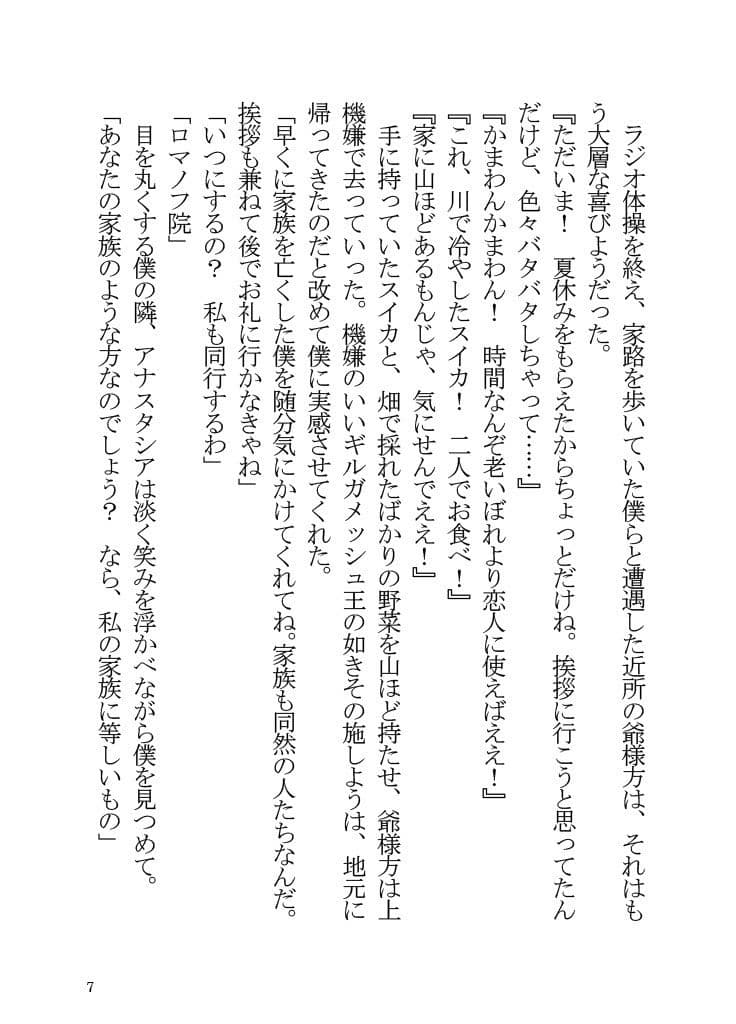 ラジオ体操を終え、家路を歩いていた僕らと遭遇した近所の爺様方は、それはも
う大層な喜びようだった。
『ただいま！　夏休みをもらえたからちょっとだけね。挨拶に行こうと思ってたん
だけど、色々バタバタしちゃって……』
『かまわんかまわん！　時間なんぞ老いぼれより恋人に使えばええ！』
『これ、川で冷やしたスイカ！　二人でお食べ！』
『家に山ほどあるもんじゃ、気にせんでええ！』
　手に持っていたスイカと、畑で採れたばかりの野菜を山ほど持たせ、爺様方は上
機嫌で去っていった。機嫌のいいギルガメッシュ王の如きその施しようは、地元に
帰ってきたのだと改めて僕に実感させてくれた。
「早くに家族を亡くした僕を随分気にかけてくれてね。家族も同然の人たちなんだ。
挨拶も兼ねて後でお礼に行かなきゃね」
「いつにするの？　私も同行するわ」
「ロマノフ院」
　目を丸くする僕の隣、アナスタシアは淡く笑みを浮かべながら僕を見つめて。
「あなたの家族のような方なのでしょう？　なら、私の家族に等しいもの」
7